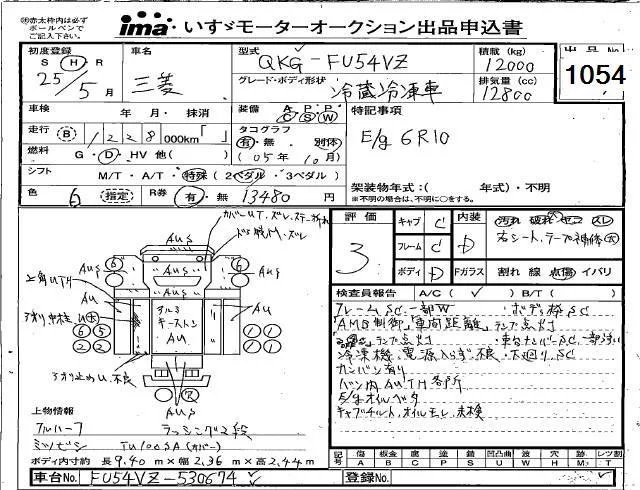 ㊟赤太枠内は必ず
ボールペンで
ご記入下さい。
ima いすゞモーターオークション出品申込書
初度登録
S H R
25/5月
車名
三菱
型式
QKG-FU54VZ
グレード・ボディ形状
冷蔵冷凍車
積載 (kg)
12000
排気量 (cc)
12800
出品No
1054
車検 年・月・抹消
走行 B 1228 000km「 」
燃料 G・D・HV 他( )
装備 A C P S P W
タコグラフ
有・無 別体
(05年10月)
特記事項
E/g 6R10
シフト M/T・A/T・特殊 (2ペダル・3ペダル)
色 6 指定
R券 有・無 13480 円
架装物年式:( 年式)・不明
※不明の場合は、不明に○をする。
評価
3
キャブ C
フレーム C
ボディ D
内装 D
Fガラス
汚れ 破れ ヤニ スレ
右シート、テープ補修(大)
割れ 線 点傷 イバリ
検査員報告 A/C ( ✓ ) B/T ( )
フレームSC、一部W ・ボディ枠SC
「AMG制御」「車間距離」ランプ点灯
冷凍機、電源入らず不良・下廻りSC
カンバン有り
バン内AUTH各所
E/gオイルベタ
キャブチルト、オイルモレ、未検
カバーUT、ズレ、ステー折れ
Aus
AU
アルミ
キーストン
AU
アオリ止めU、不良
上物情報
アルハーフ ラッシング2段
ミツビシ TU100SA (カバー)
ボディ内寸約 長9.40m×幅2.36m×高2.44m
記号 傷 板金 腐 塗 錆 凹凸曲 割 穴 跡 レツ割
A B C P S U W H M T
車台No. FU54VZ-530674
登録No.